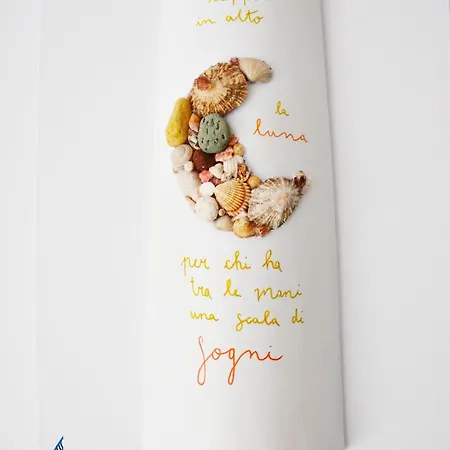 in alto
la
luna
per chi ha
tra le mani
una scala di
sogni